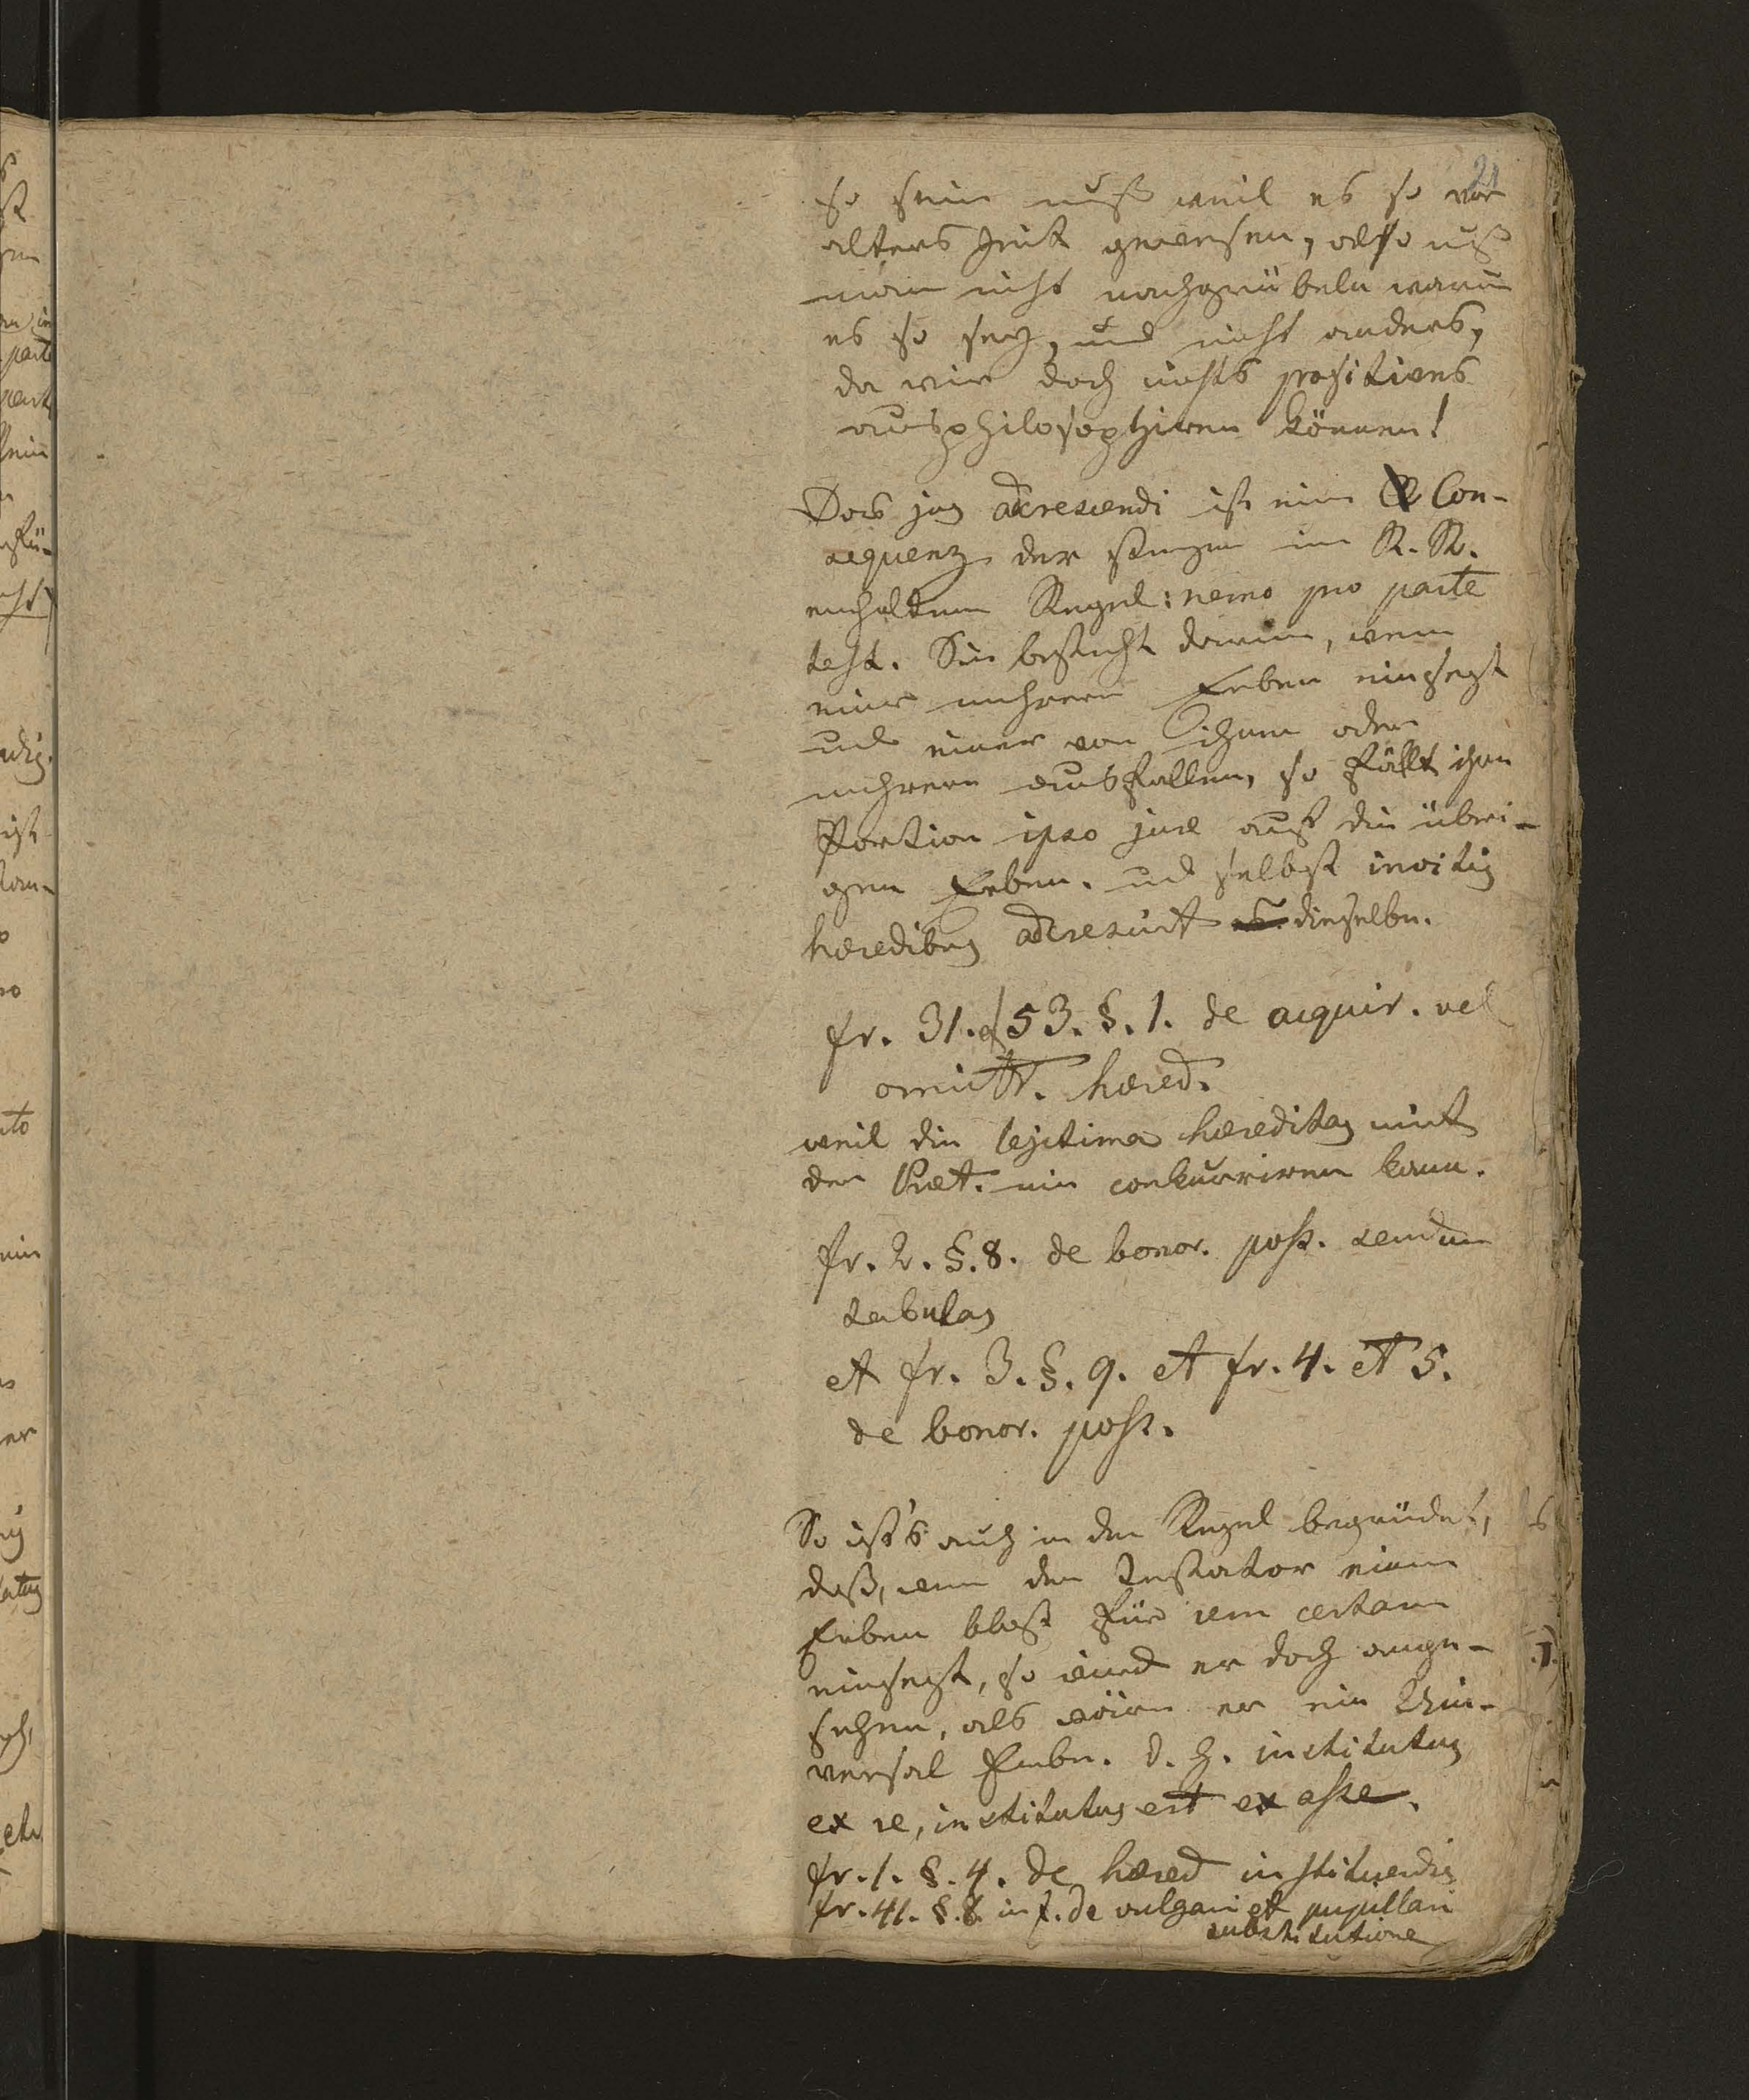 21
so sein muß weil es so vor
alters Zeit gewesen, also muß
man nicht nachgrübeln warum
es so sey, und nicht anders,
da wir doch nichts positives
ausphilosophiren können!
Das jus adcrescendi ist eine Con-
sequenz der strengen im R. R.
enthaltenen Regel: nemo pro parte
test. Sie besteht darinn, wenn
einer mehrere Erben einsezt
und einer von ihnen oder
mehrere ausfallen, so fällt ihre
Portion ipso jure auf die übri-
gen Erben. und selbst invitis
hæredibus adcrescirt dieselbe.
fr. 31. et 53. §. 1. de acquir. vel
omitt. hæred.
weil die legitima hæreditas mit
der test. nie conkurriren kann.
fr. 2. §. 8. de bonor. poss. secundum
tabulas
et fr. 3. §. 9. et fr. 4. et 5.
de bonor. poss.
So ist's auch in der Regel begründet,
daß, wenn der Testator einen
Erben bloß für rem certam
einsezt, so wird er doch ange-
sehen, als wäre er ein Uni-
versal Erbe. d. h. institutus
ex re, institutus est ex asse.
fr. 1. §. 4. de hæred instituendis
fr. 41. §. 8. in f. de vulgari et pupillari
substitutione